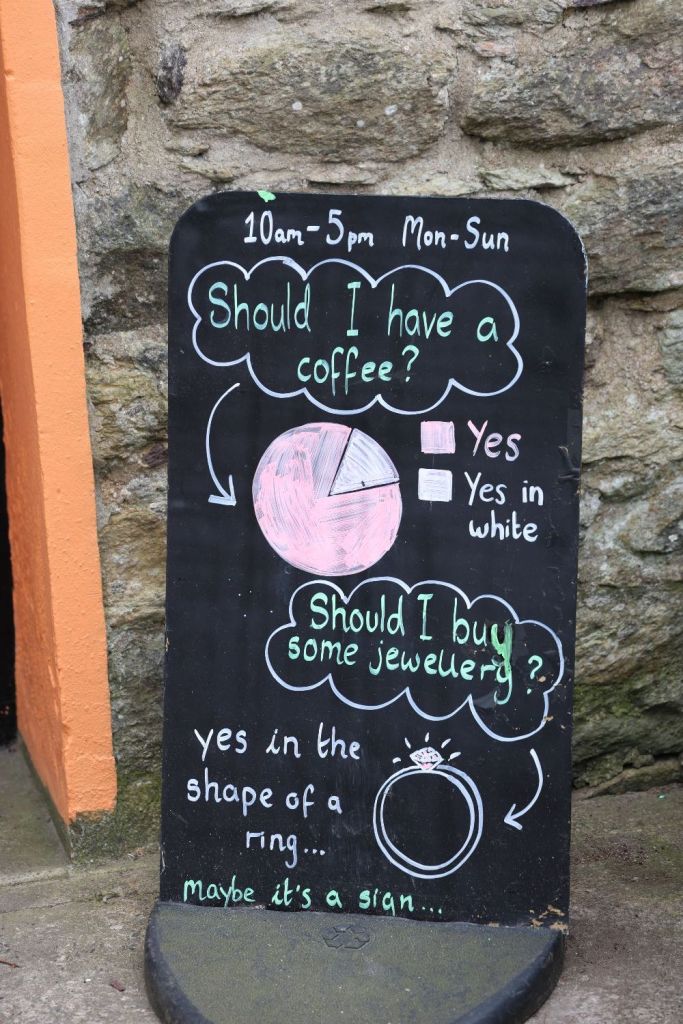 10am-5pm Mon-Sun
Should I have a
coffee?
Yes
Yes in
white
Should I buy
some jewellery?
yes in the
shape of a
ring...
maybe it's a sign...